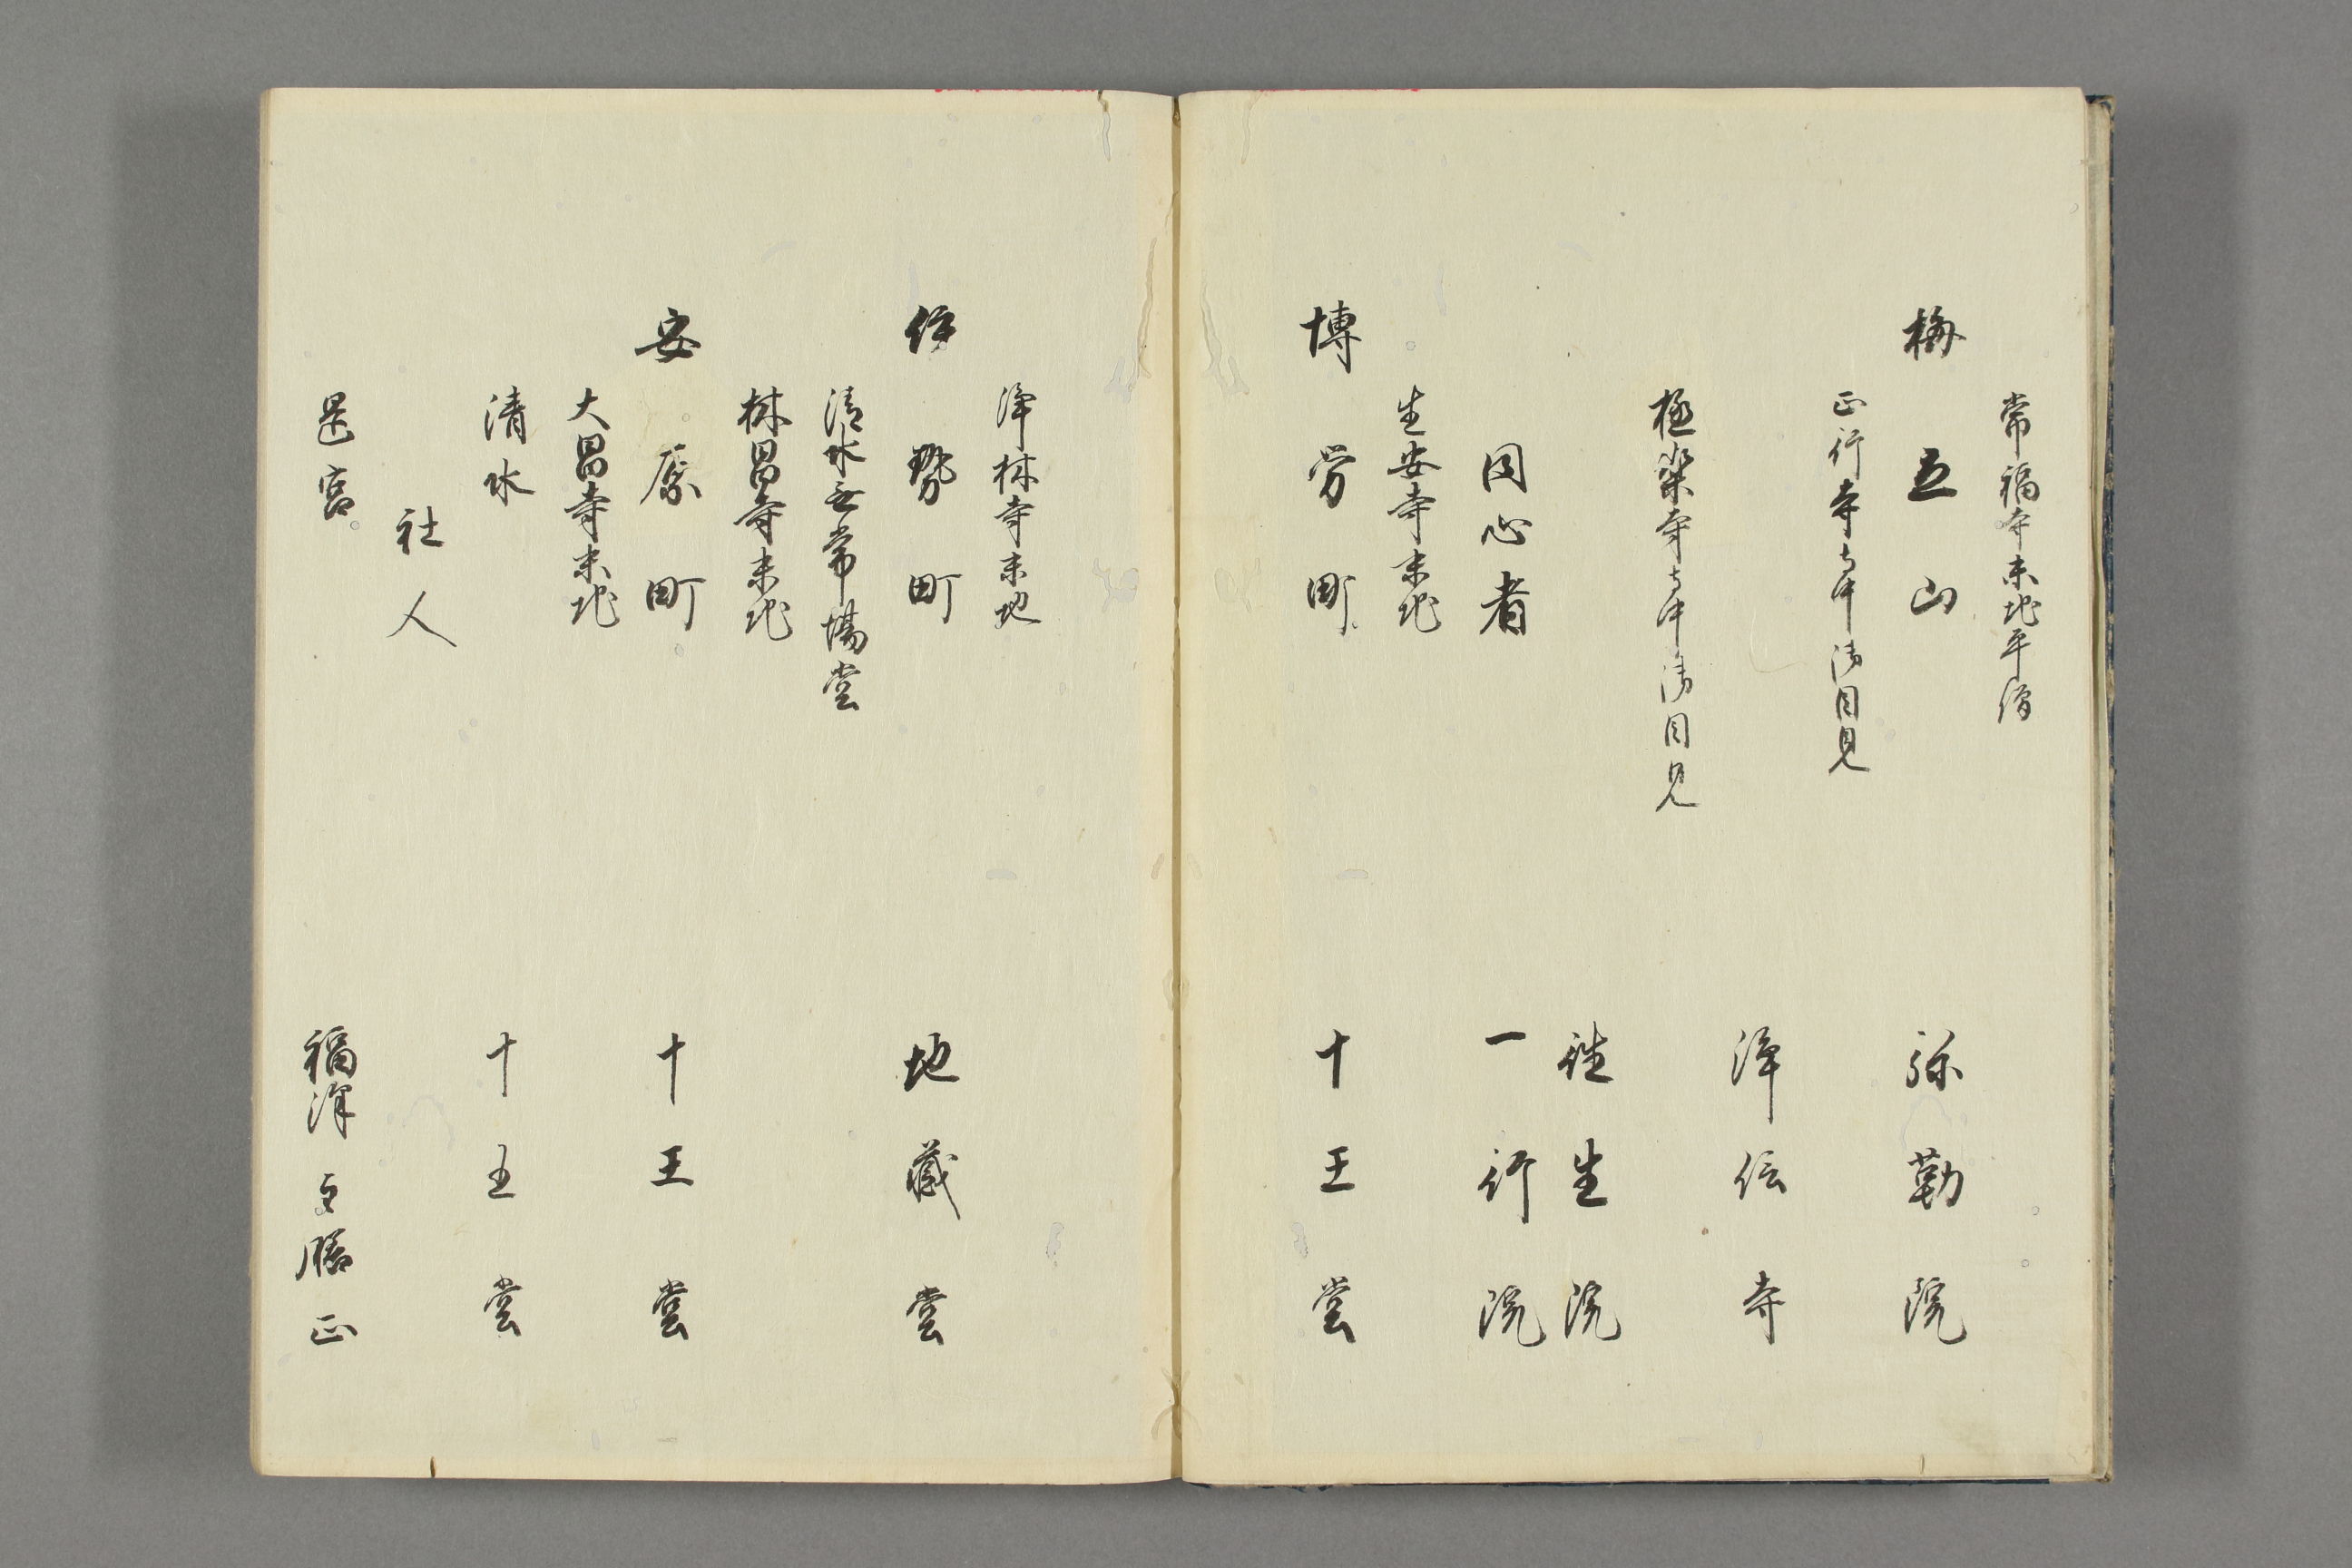 常福寺末地平僧
梅立山　弥勒院
正行寺寺中御目見
浄伝寺
極楽寺寺中御目見
往生院
同心者　一行院
生安寺末地
博労町　十王堂
浄林寺末地
伊勢町　地蔵堂
清水無常場堂
林昌寺末地
安原町　十王堂
大昌寺末地
清水　十王堂
社人
宮　福沢　正